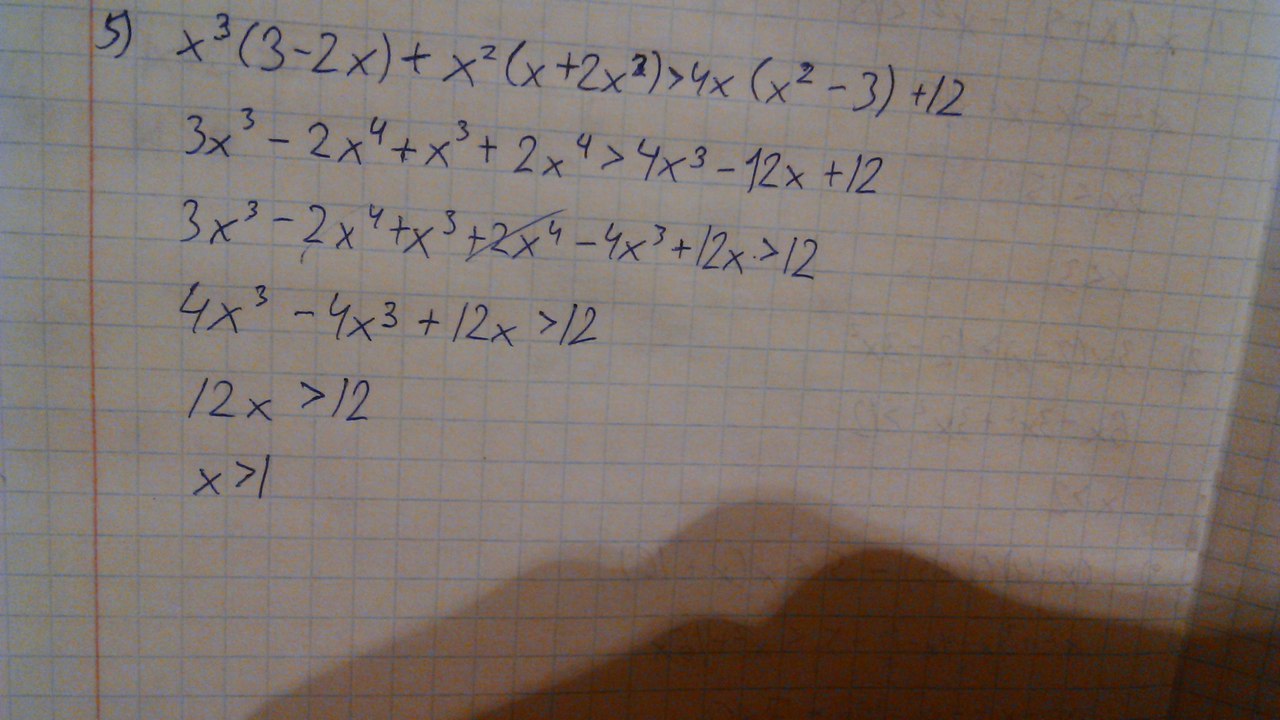 5) x³(3-2x)+x²(x+2x²)>4x(x²-3)+12
3x³-2x⁴+x³+2x⁴>4x³-12x+12
3x³-2x⁴+x³+2x⁴-4x³+12x>12
4x³-4x³+12x>12
12x>12
x>1